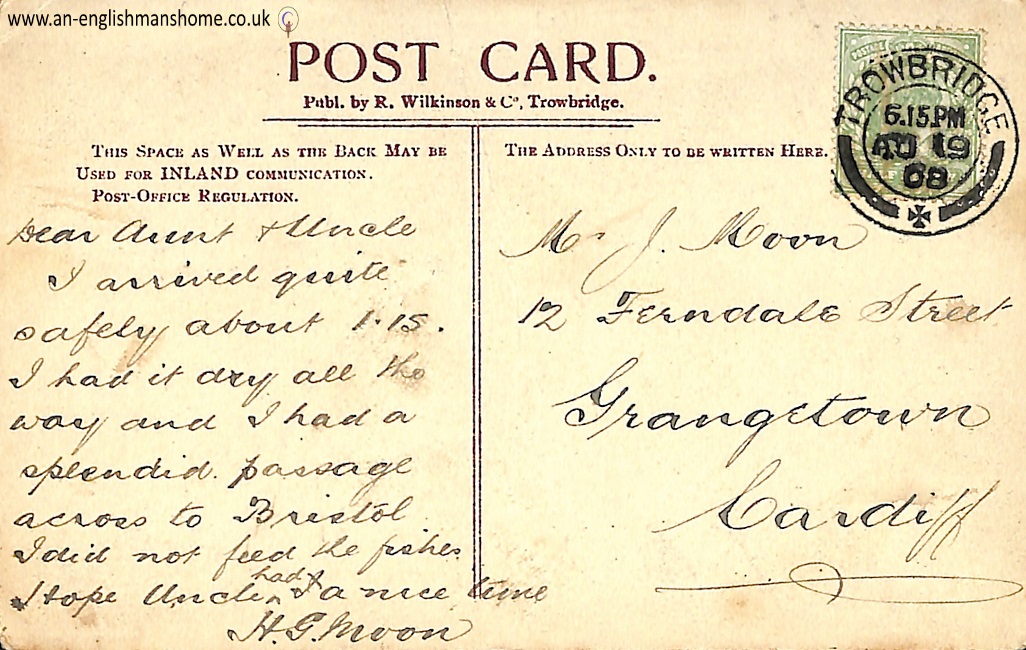 www.an-englishmanshome.co.uk
POST CARD.
Publ. by R. Wilkinson & Co, Trowbridge.
This Space as Well as the Back May be
Used for INLAND communication.
Post-Office Regulation.
Dear Aunt & Uncle
I arrived quite
safely about 1.15.
I had it dry all the
way and I had a
splendid passage
across to Bristol
I did not feed the fishes
Hope Uncle had a nice time
H.G. Moon
The Address Only to be written Here.
TROWBRIDGE
6.15PM
AU 19
08
Mr J. Moon
12 Ferndale Street
Grangetown
Cardiff